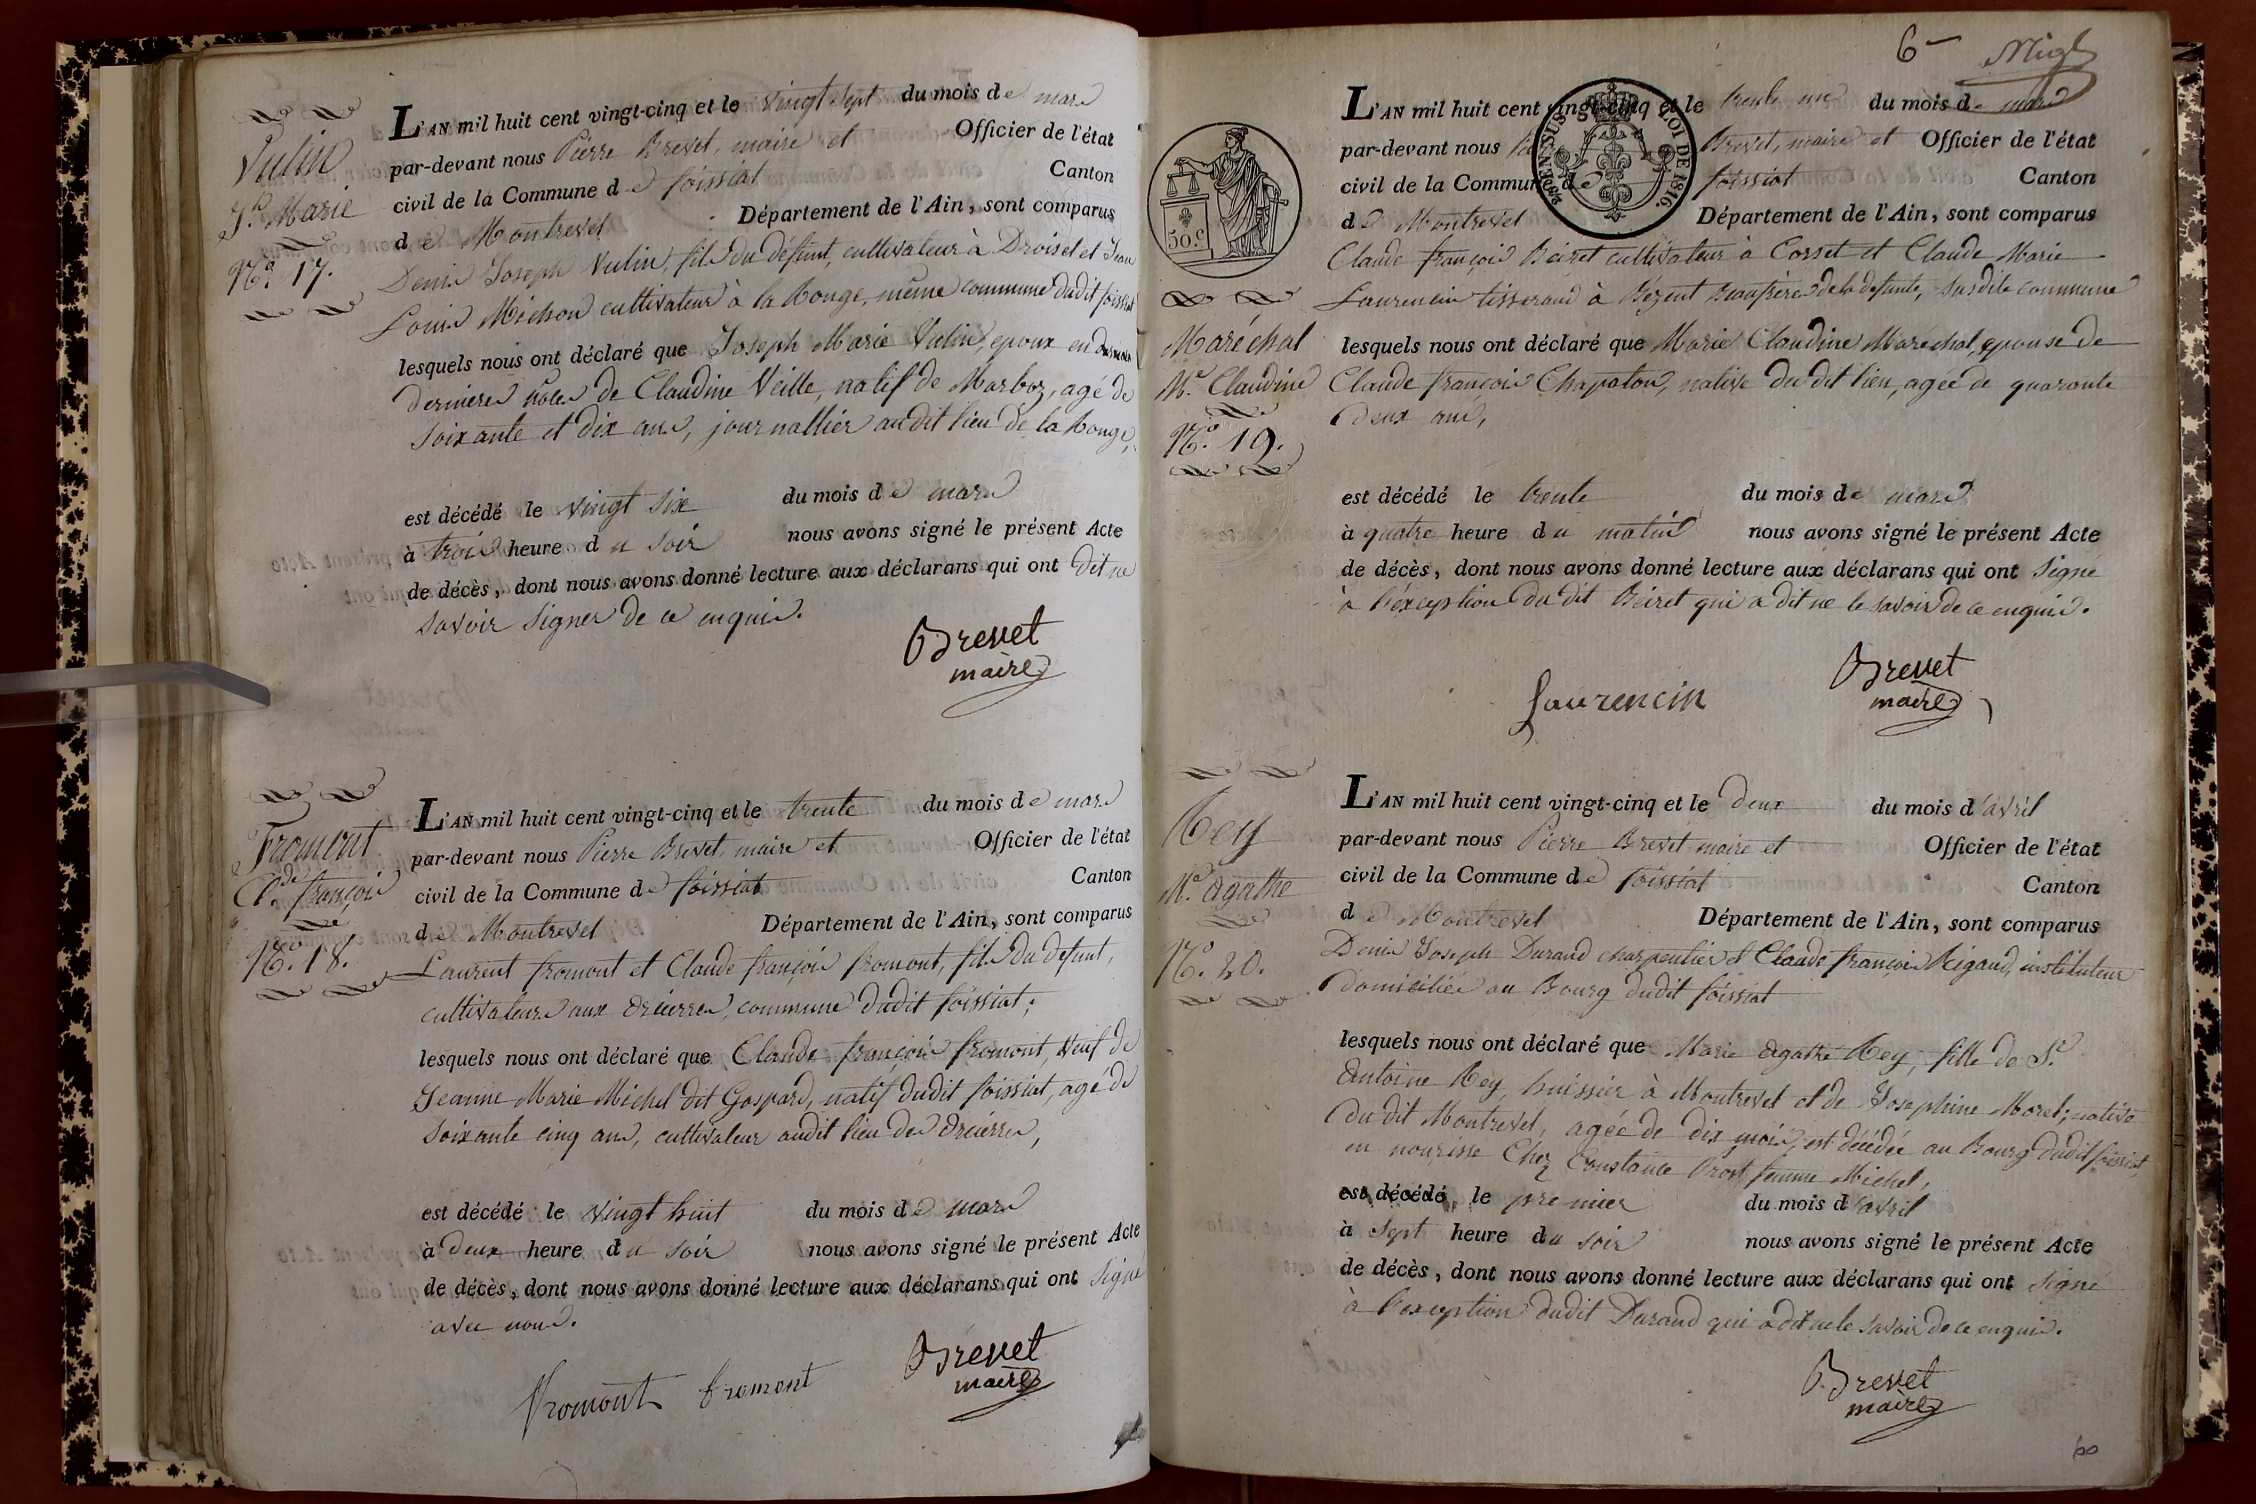 Vulin
J.ph Marie
N.o 17.
L'AN mil huit cent vingt-cinq et le vingt sept du mois de mars
par-devant nous Pierre Brevet, maire et Officier de l'état
civil de la Commune de foissiat Canton
de Montrevel Département de l'Ain, sont comparus
Denis Joseph Vulin, fils du défunt, cultivateur à Droiset et Jean
Louis Michon cultivateur à la Ronge, même commune dudit foissiat
lesquels nous ont déclaré que Joseph Marie Vulin, epoux en
dernieres noces de Claudine Veille, natif de Marboz, agé de
soixante et dix ans, journallier audit lieu de la Ronge,
est décédé le vingt six du mois de mars
à trois heure du soir nous avons signé le présent Acte
de décès, dont nous avons donné lecture aux déclarans qui ont dit ne
savoir signer de ce enquis.
Brevet
maire
Fromont
C.de françois
N.o 18.
L'AN mil huit cent vingt-cinq et le trente du mois de mars
par-devant nous Pierre Brevet, maire et Officier de l'état
civil de la Commune de foissiat Canton
de Montrevel Département de l'Ain, sont comparus
Laurent fromont et Claude françois fromont, fils du defunt,
cultivateurs aux commune dudit foissiat;
lesquels nous ont déclaré que Claude françois fromont, veuf de
Jeanne Marie Michel dit Gaspard, natif dudit foissiat, agé de
soixante cinq ans, cultivateur audit lieu des
est décédé le vingt huit du mois de mars
à deux heure du soir nous avons signé le présent Acte
de décès, dont nous avons donné lecture aux déclarans qui ont signé
avec nous.
Fromont fromont Brevet
maire
6
L'AN mil huit cent vingt-cinq et le trente un du mois de mars
par-devant nous Brevet, maire et Officier de l'état
civil de la Commune de foissiat Canton
de Montrevel Département de l'Ain, sont comparus
EN SUS LOI DE 1816.
50.c
Claude françois Béiret cultivateur à Corset et Claude Marie
Laurencin tisserand à Bézent Beaufrères de la defunte, susdite commune
Maréchal
M.e Claudine
N.o 19.
lesquels nous ont déclaré que Marie Claudine Maréchal, epouse de
Claude françois Chapaton, native du dit lieu, agée de quarante
deux ans,
est décédé le trente du mois de mars
à quatre heure du matin nous avons signé le présent Acte
de décès, dont nous avons donné lecture aux déclarans qui ont signé
à l'éxception du dit Béiret qui a dit ne le savoir de ce enquis.
Laurencin Brevet
maire
Rey
M.e agathe
N.o 20.
L'AN mil huit cent vingt-cinq et le deux du mois d'avril
par-devant nous Pierre Brevet maire et Officier de l'état
civil de la Commune de foissiat Canton
de Montrevel Département de l'Ain, sont comparus
Denis Joseph Durand charpentier et Claude françois Rigaud, instituteur
domiciliés au Bourg dudit foissiat
lesquels nous ont déclaré que Marie agathe Rey, fille de S.r
Antoine Rey, huissier à Montrevel et de Josephine Morel; native
du dit Montrevel, agée de dix mois, est décédée au Bourg dudit foissiat
en nourisse Chez Constance Prost femme Michel,
est décédé, le premier du mois d'avril
à sept heure du soir nous avons signé le présent Acte
de décès, dont nous avons donné lecture aux déclarans qui ont signé
à l'exception dudit Durand qui a dit ne le savoir de ce enquis.
Brevet
maire